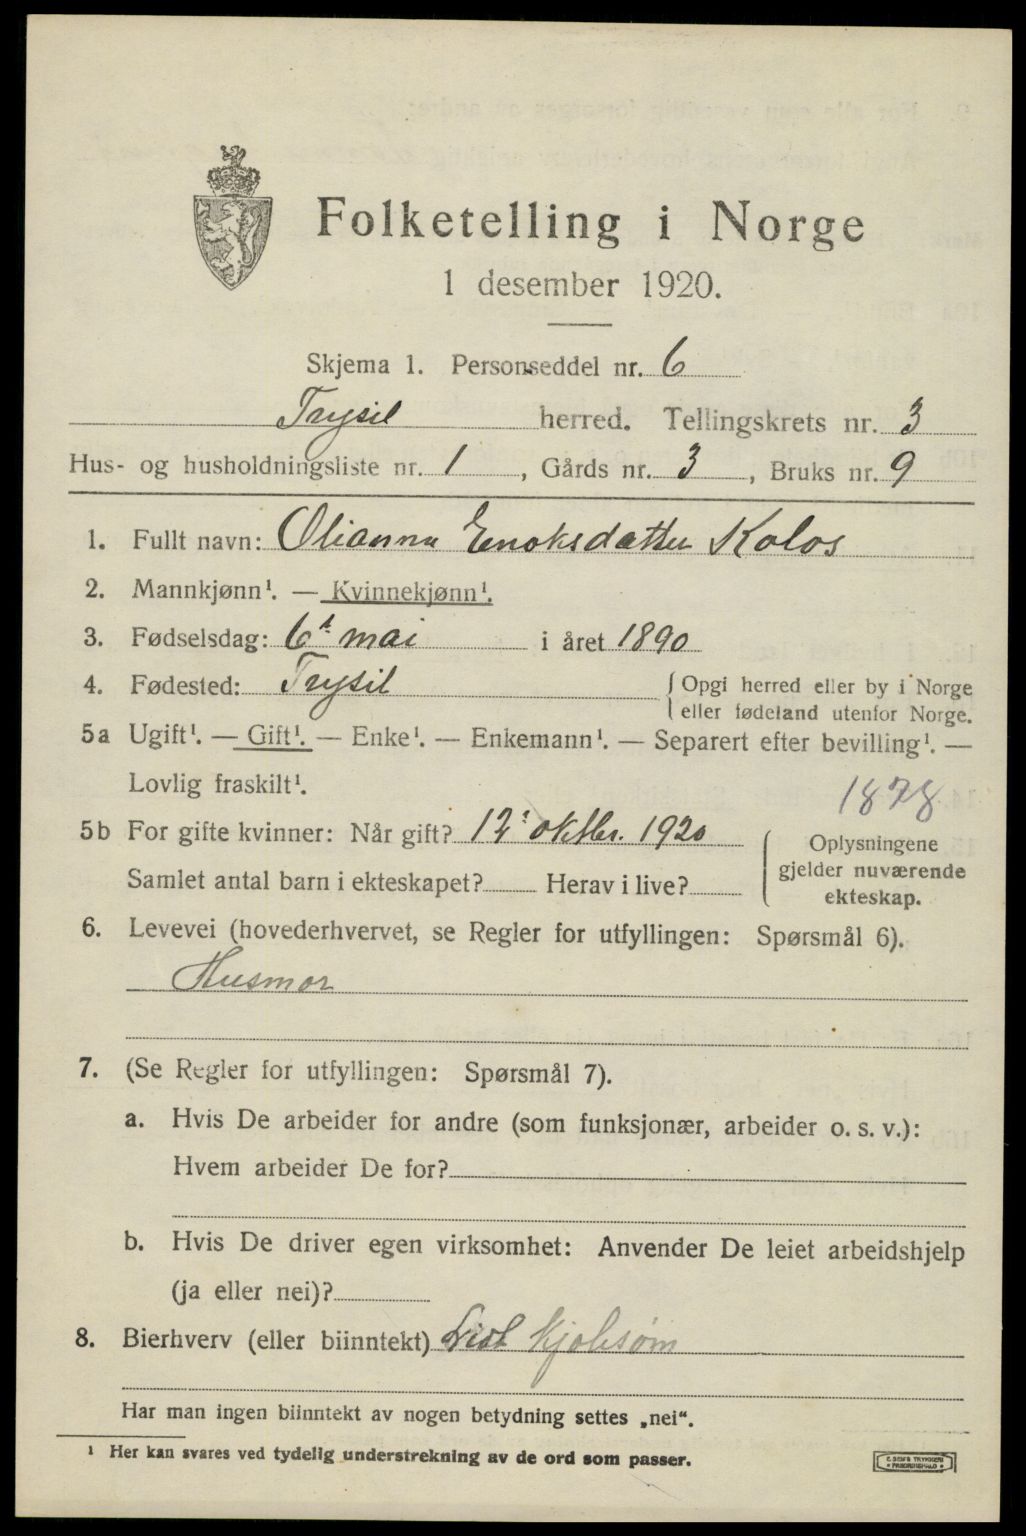 Folketelling i Norge
1 desember 1920.
Skjema 1. Personseddel nr. 6
Trysil herred. Tellingskrets nr. 3
Hus- og husholdningsliste nr. 1, Gårds nr. 3, Bruks nr. 9
1. Fullt navn: Olianna Enoksdatter Kolos
2. Mannkjønn¹. — Kvinnekjønn¹.
3. Fødselsdag: 6 mai i året 1890
4. Fødested: Trysil { Opgi herred eller by i Norge
eller fødeland utenfor Norge.
5a Ugift¹. — Gift¹. — Enke¹. — Enkemann¹. — Separert efter bevilling¹. —
Lovlig fraskilt¹.
1878
5b For gifte kvinner: Når gift? 12' oktbr. 1920
Samlet antal barn i ekteskapet? Herav i live?
{ Oplysningene
gjelder nuværende
ekteskap.
6. Levevei (hovederhvervet, se Regler for utfyllingen: Spørsmål 6).
Husmor
7. (Se Regler for utfyllingen: Spørsmål 7).
a. Hvis De arbeider for andre (som funksjonær, arbeider o. s. v.):
Hvem arbeider De for?
b. Hvis De driver egen virksomhet: Anvender De leiet arbeidshjelp
(ja eller nei)?
8. Bierhverv (eller biinntekt) Litt kjolesøm
Har man ingen biinntekt av nogen betydning settes „nei“.
¹ Her kan svares ved tydelig understrekning av de ord som passer.